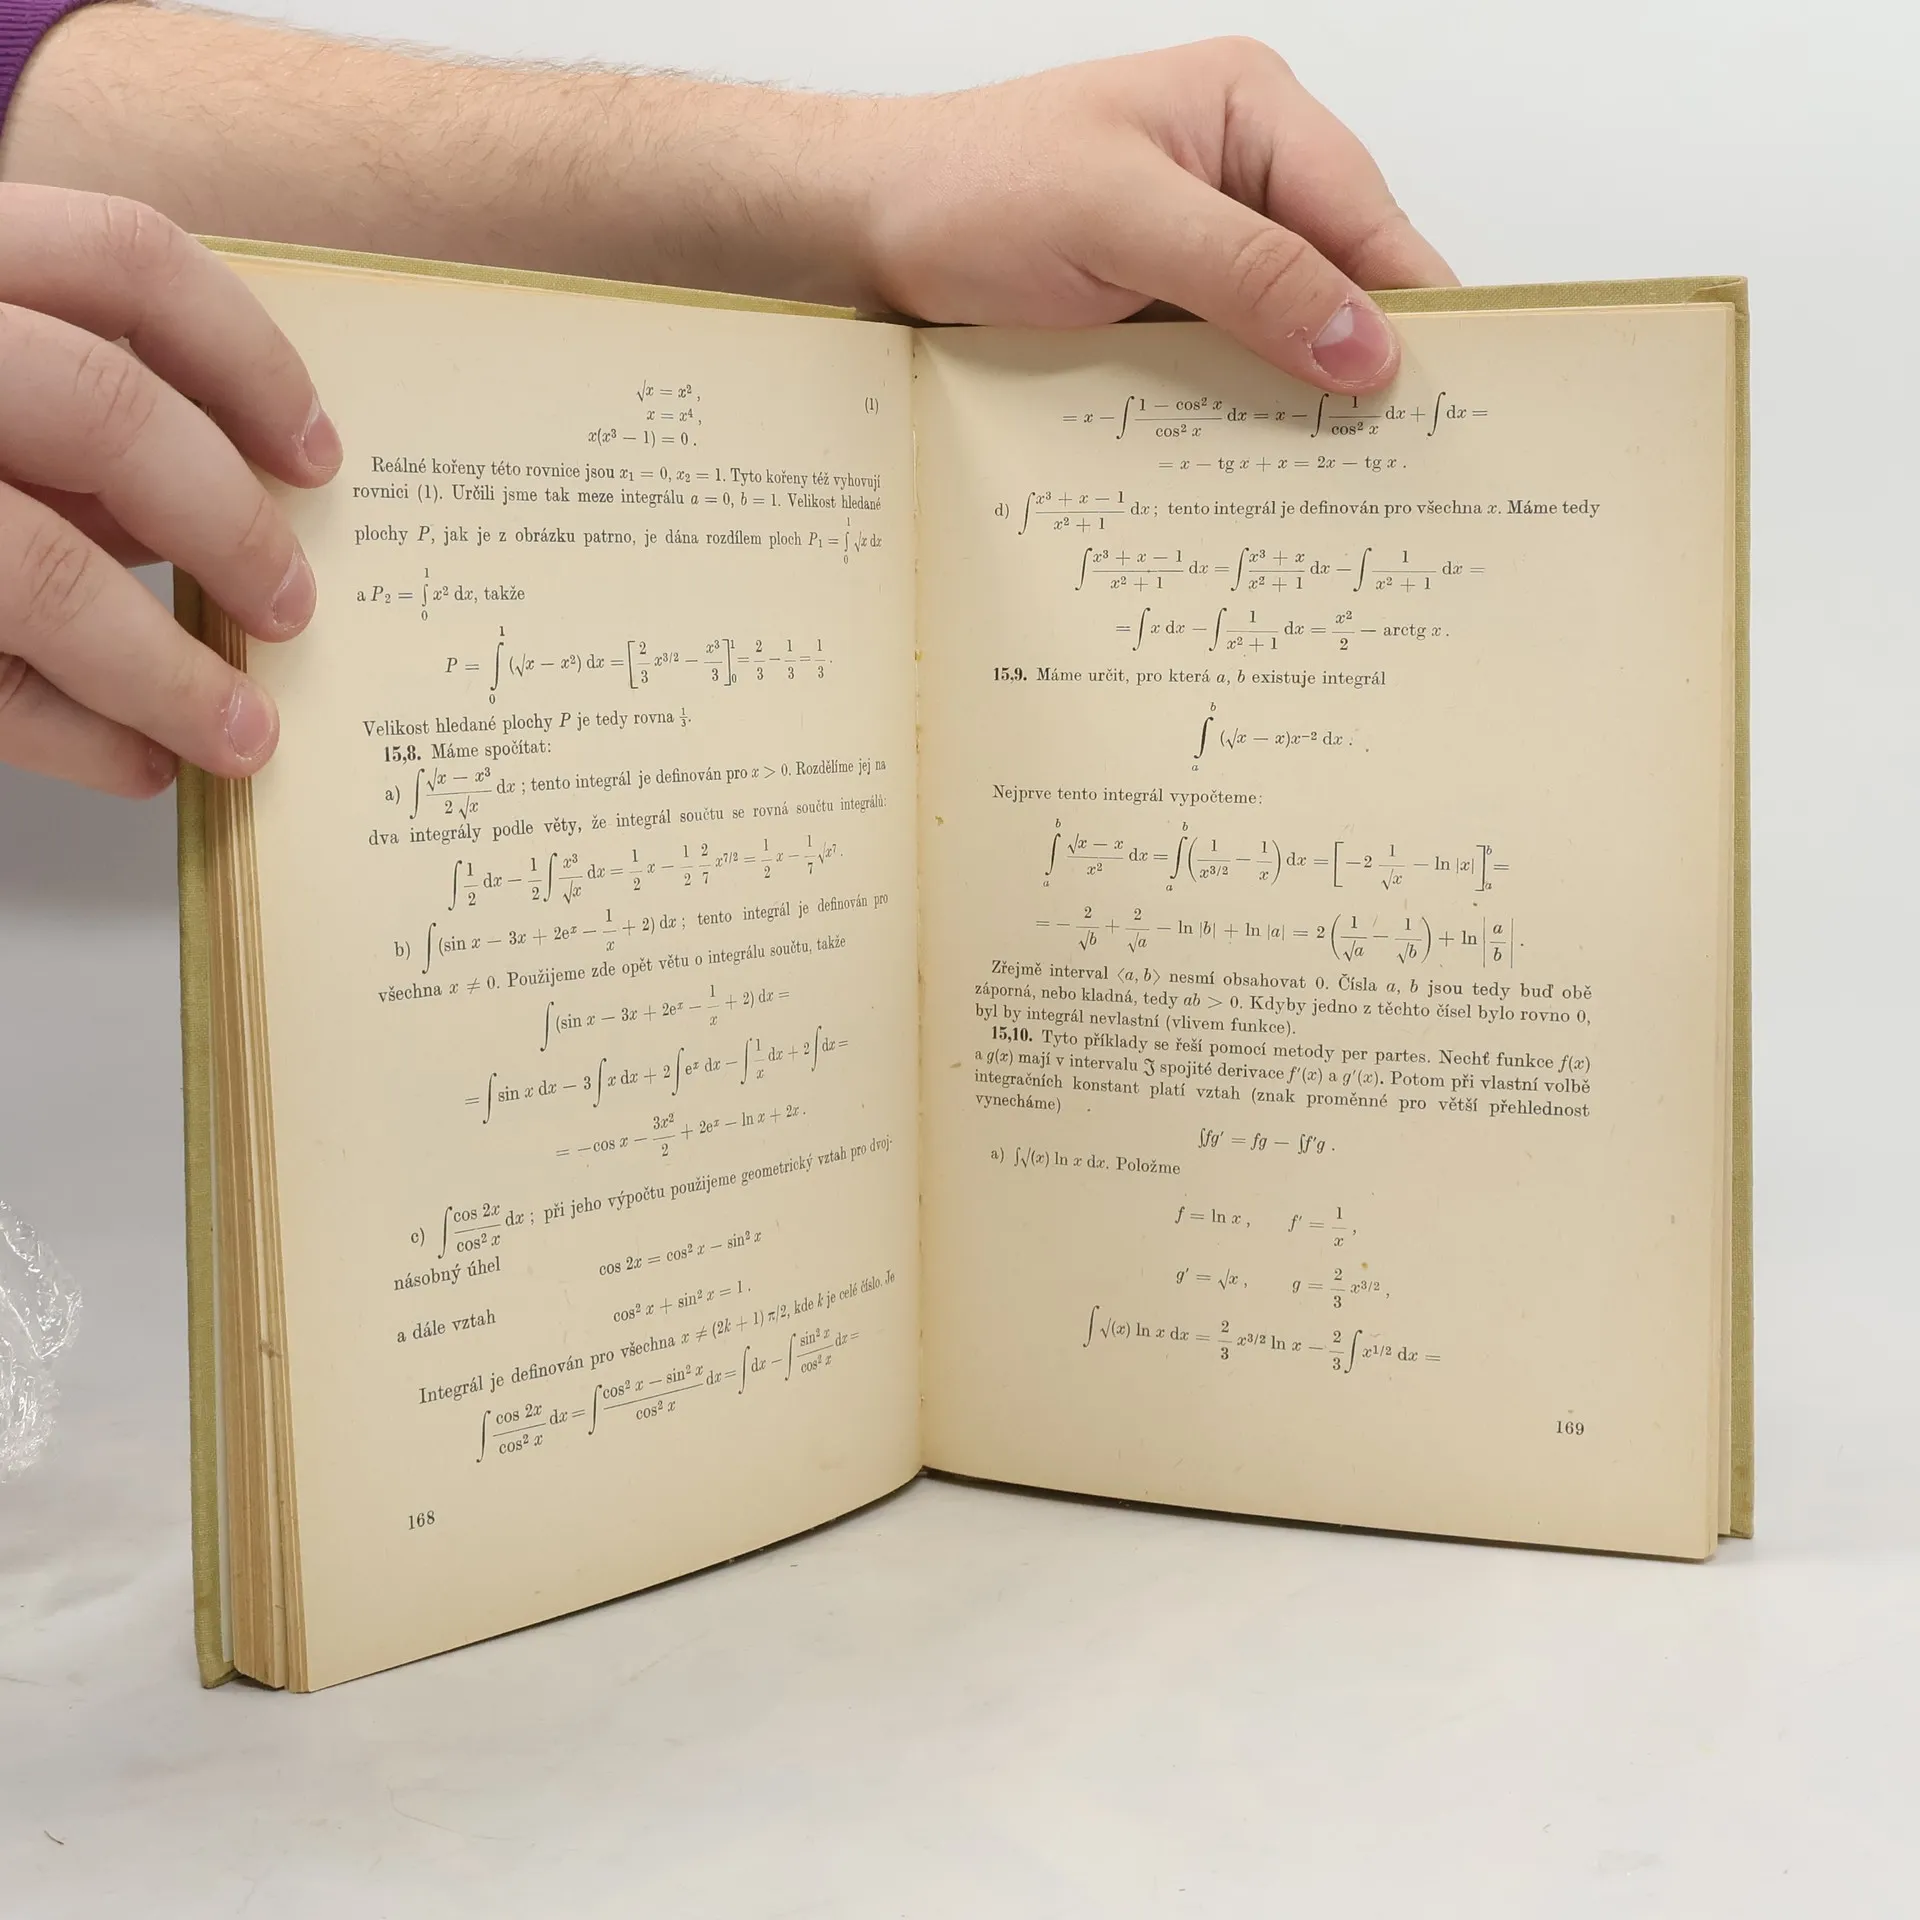 √x = x² ,
x = x⁴ , (1)
x(x³ − 1) = 0 .
Reálné kořeny této rovnice jsou x₁ = 0, x₂ = 1. Tyto kořeny též vyhovují
rovnici (1). Určili jsme tak meze integrálu a = 0, b = 1. Velikost hledané
plochy P, jak je z obrázku patrno, je dána rozdílem ploch P₁ = ∫₀¹ √x dx
a P₂ = ∫₀¹ x² dx, takže
P = ∫₀¹ (√x − x²) dx = [2/3 x^(3/2) − x³/3]₀¹ = 2/3 − 1/3 = 1/3 .
Velikost hledané plochy P je tedy rovna 1/3.
15,8. Máme spočítat:
a) ∫ (√x − x³)/(2 √x) dx ; tento integrál je definován pro x > 0. Rozdělíme jej na
dva integrály podle věty, že integrál součtu se rovná součtu integrálů:
∫ 1/2 dx − 1/2 ∫ x³/√x dx = 1/2 x − 1/2 2/7 x^(7/2) = 1/2 x − 1/7 √x⁷ .
b) ∫ (sin x − 3x + 2eˣ − 1/x + 2) dx ; tento integrál je definován pro
všechna x ≠ 0. Použijeme zde opět větu o integrálu součtu, takže
∫ (sin x − 3x + 2eˣ − 1/x + 2) dx =
= ∫ sin x dx − 3 ∫ x dx + 2 ∫ eˣ dx − ∫ 1/x dx + 2 ∫ dx =
= −cos x − 3x²/2 + 2eˣ − ln x + 2x .
c) ∫ cos 2x/cos² x dx ; při jeho výpočtu použijeme geometrický vztah pro dvoj-
násobný úhel
cos 2x = cos² x − sin² x
a dále vztah
cos² x + sin² x = 1 .
Integrál je definován pro všechna x ≠ (2k + 1) π/2, kde k je celé číslo. Je
∫ cos 2x/cos² x dx = ∫ (cos² x − sin² x)/cos² x dx = ∫ dx − ∫ sin² x/cos² x dx =
168
= x − ∫ (1 − cos² x)/cos² x dx = x − ∫ 1/cos² x dx + ∫ dx =
= x − tg x + x = 2x − tg x .
d) ∫ (x³ + x − 1)/(x² + 1) dx ; tento integrál je definován pro všechna x. Máme tedy
∫ (x³ + x − 1)/(x² + 1) dx = ∫ (x³ + x)/(x² + 1) dx − ∫ 1/(x² + 1) dx =
= ∫ x dx − ∫ 1/(x² + 1) dx = x²/2 − arctg x .
15,9. Máme určit, pro která a, b existuje integrál
∫ₐᵇ (√x − x)x⁻² dx .
Nejprve tento integrál vypočteme:
∫ₐᵇ (√x − x)/x² dx = ∫ₐᵇ (1/x^(3/2) − 1/x) dx = [−2 1/√x − ln |x|]ₐᵇ =
= − 2/√b + 2/√a − ln |b| + ln |a| = 2 (1/√a − 1/√b) + ln |a/b| .
Zřejmě interval ⟨a, b⟩ nesmí obsahovat 0. Čísla a, b jsou tedy buď obě
záporná, nebo kladná, tedy ab > 0. Kdyby jedno z těchto čísel bylo rovno 0,
byl by integrál nevlastní (vlivem funkce).
15,10. Tyto příklady se řeší pomocí metody per partes. Nechť funkce f(x)
a g(x) mají v intervalu ℑ spojité derivace f′(x) a g′(x). Potom při vlastní volbě
integračních konstant platí vztah (znak proměnné pro větší přehlednost
vynecháme)
∫fg′ = fg − ∫f′g .
a) ∫√(x) ln x dx. Položme
f = ln x , f′ = 1/x ,
g′ = √x , g = 2/3 x^(3/2) ,
∫ √(x) ln x dx = 2/3 x^(3/2) ln x − 2/3 ∫ x^(1/2) dx =
169